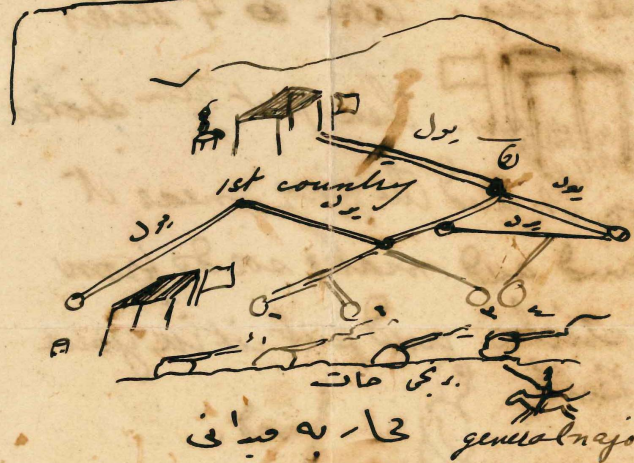 يول
يول
1st country
يول
يول
يول
برنجى حات
محاربه ميدانى
general najo